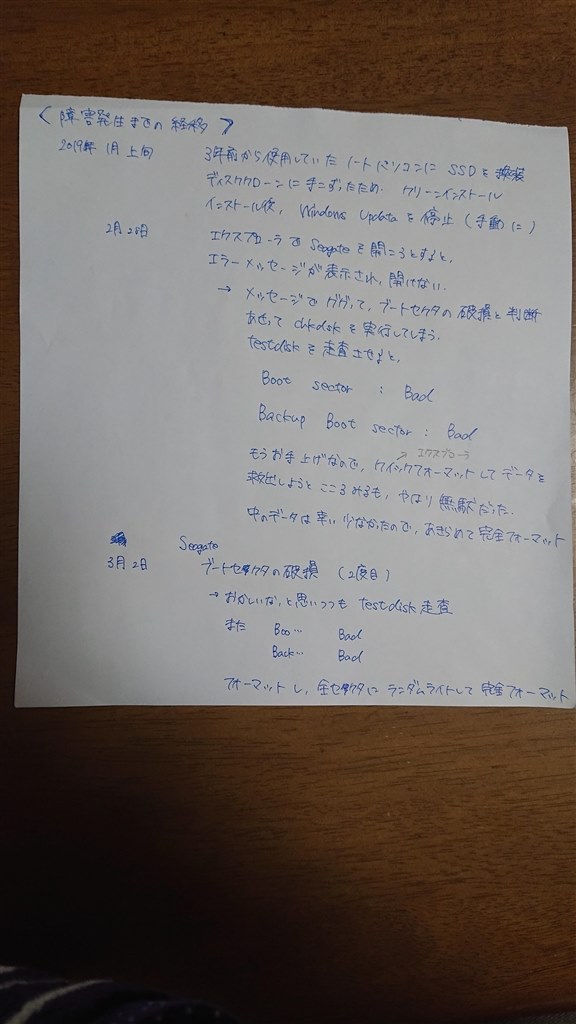 < 障害発生までの経移 >
2019年 1月上旬 3年前から使用していたノートパソコンに SSDを換装
ディスククローンに手こずったため、クリーンインストール
インストール後、Windows Updateを停止(手動に)
2月28日 エクスプローラでSeagateを開こうとすると、
エラーメッセージが表示され、開けない.
→ メッセージでググって、ブートセクタの破損と判断
あせって chkdskを実行してしまう.
testdiskを走査させると、
Boot sector : Bad
Backup Boot sector : Bad
エクスプローラ
もうお手上げなので、クイックフォーマットしてデータを
救出しようとこころみるも、やはり無駄だった.
中のデータは幸い少なかったので、あきらめて完全フォーマット
Seagate
3月2日 ブートセクタの破損 (2度目)
→おかしいな、と思いつつも testdisk走査
また Boo… Bad
Back… Bad
フォーマットし、全セクタにランダムライトして完全フォーマット